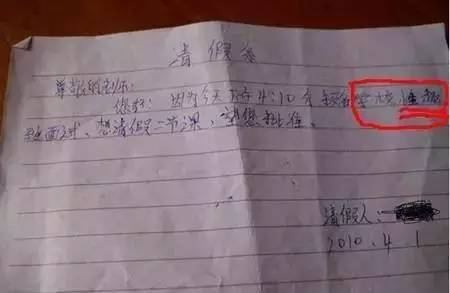 请假条
尊敬的老师:
您好: 因为今天下午4:10分
面试、想请假二节课,望您批准。
请假人:
2010.4.1